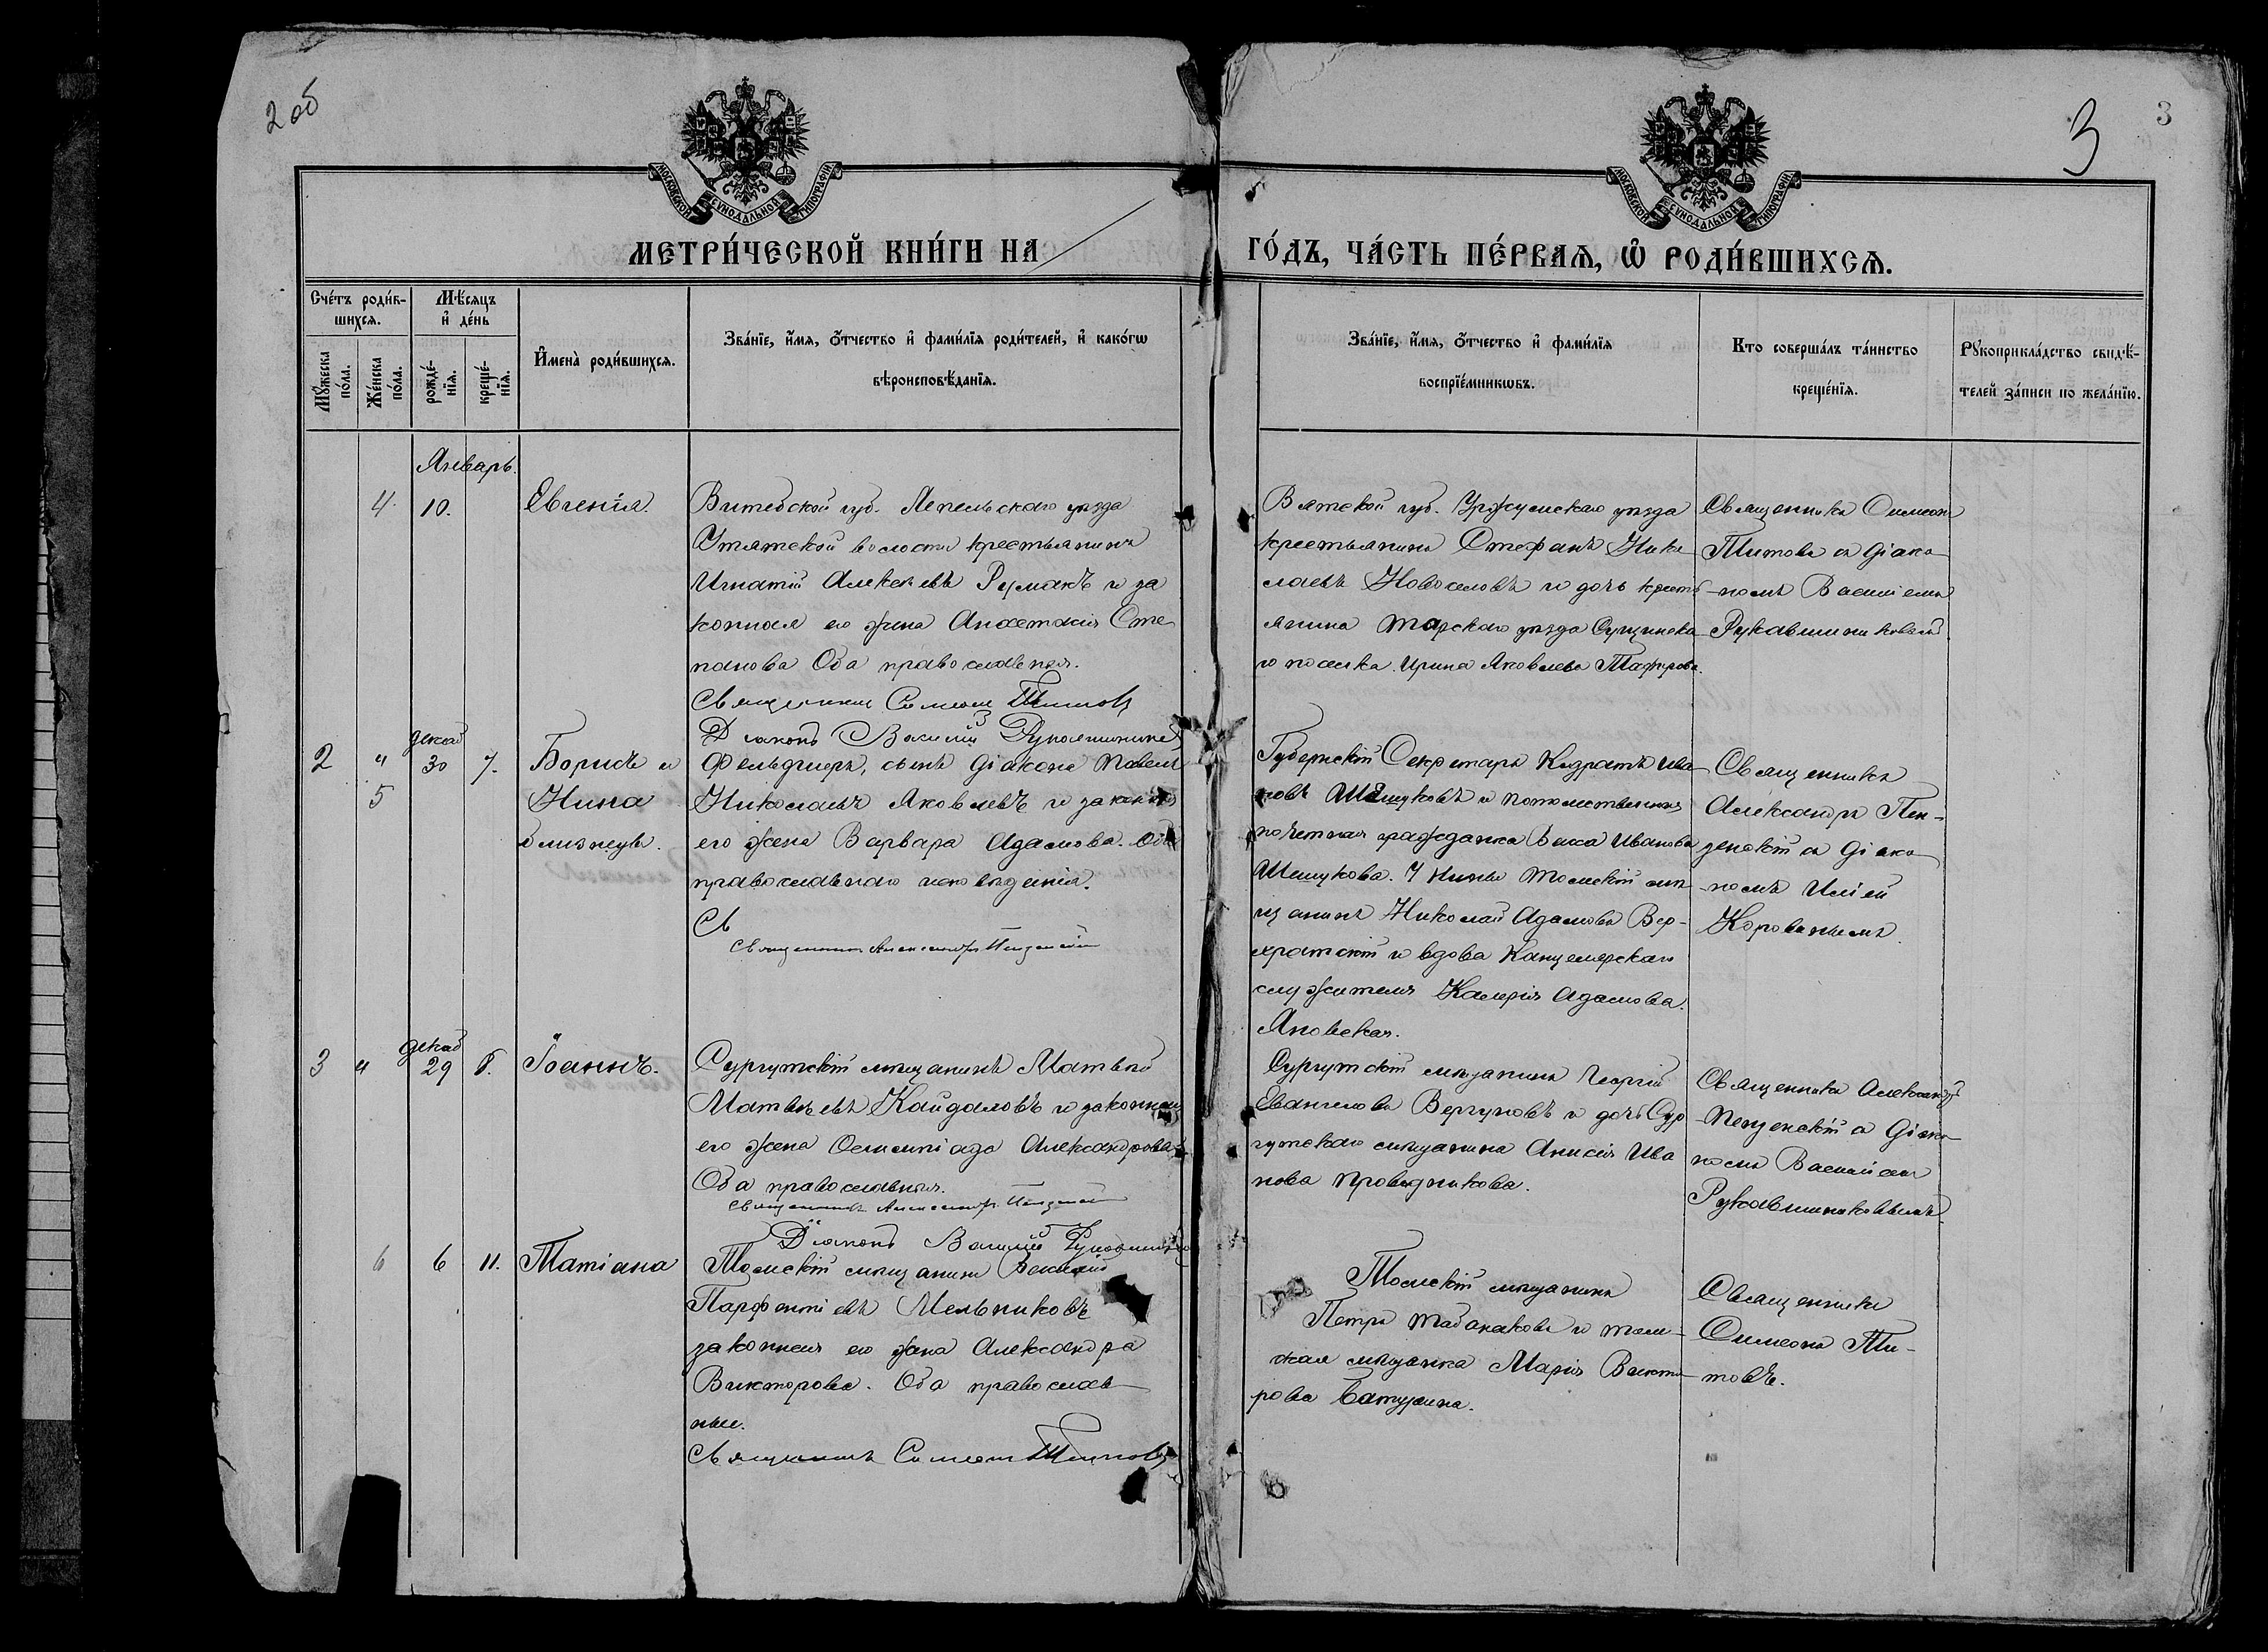 2 об
3
3
МОСКОВСКОЙ СѴНОДАЛЬНОЙ ТИПОГРАФІИ
МОСКОВСКОЙ СѴНОДАЛЬНОЙ ТИПОГРАФІИ
МЕТРИ́ЧЕСКОЙ КНИ́ГИ НА
ГО́ДЪ, ЧА́СТЬ ПЕ́РВАѦ, Ѡ҆ РОДИ́ВШИХСѦ.
Сче́тъ роди́в-
шихсѧ.
Мѣ́сѧцъ
и҆ де́нь
Мꙋ́жеска
по́ла.
Же́нска
по́ла.
рожде́-
нїѧ.
креще́-
нїѧ.
И҆мена̀ роди́вшихсѧ.
Зва́нїе, и҆́мѧ, ѻ҆́тчество и҆ фами́лїѧ роди́телей, и҆ како́гѡ
вѣроисповѣ́данїѧ.
Зва́нїе, и҆́мѧ, ѻ҆́тчество и҆ фами́лїѧ
воспрїе́мникѡвъ.
Кто соверша́лъ та́инство
креще́нїѧ.
Рꙋкоприкла́дство свидѣ́-
телей за́писи по жела́нїю.
Январь.
4. 10. Евгенія.
Витебской губ. Лепельскаго уѣзда
волости крестьянинъ
Игнатій Алексѣевъ Румакъ и за
конная его жена Анастасія Сте
панова Оба православныя.
Священникъ Симеонъ Титовъ
Діаконъ Василій
Вятской губ. Уржумскаго уѣзда
крестьянинъ Стефанъ Нико
лаевъ Новоселовъ и дочь кресть
янина Тарскаго уѣзда
го поселка Ирина Яковлева
Священникъ Симеонъ
Титовъ съ діако
номъ Василіемъ
Рукавишниковымъ
2 " декаб 30 7. Борисъ и
5 Нина
близнецы.
Фельдшеръ, сынъ діакона Павелъ
Николаевъ Яковлевъ и законная
его жена Варвара Адамова. Оба
православнаго исповѣданія.
Св
Священникъ Александръ Пензенскій
Губернскій Секретарь Кодратъ Ива
новъ Шешуковъ и потомственная
почетная гражданка Васса Иванова
Шешукова. У Нины Томскій мѣ
щанинъ Николай Адамовъ Вер-
хратскій и вдова Канцелярскаго
служителя Калерія Адамова
Яновская.
Священникъ
Александръ Пен-
зенскій съ діако
номъ Иліей
Коровинымъ.
3 " декаб 29 8. Іоаннъ.
Сургутскій мѣщанинъ Матвѣй
Матвѣевъ Кайдаловъ и законная
его жена Олимпіада Александрова
Оба православныя.
Священникъ Александръ Пензенскій
Діаконъ Василій
Сургутскій мѣщанинъ Георгій
Евангеловъ Вергуновъ и дочь Сур
гутскаго мѣщанина Анисія Ива
нова Проводникова.
Священникъ Александръ
Пензенскій съ діако
номъ Василіемъ
Рукавишниковымъ.
6 6 11. Татіана
Томскій мѣщанинъ Василій
Парфентіевъ Мельниковъ
законная его жена Александра
Викторова. Оба православ
ные.
Священникъ Симеонъ Титовъ
Томскій мѣщанинъ
Петръ Табанаковъ и том-
ская мѣщанка Марія Викто
рова Батурина.
Священникъ
Симеонъ Ти-
товъ.